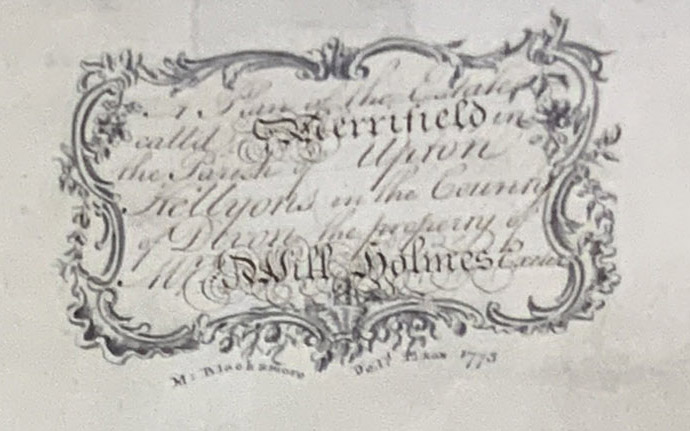 A Plan of the Estate
called Merrifield in
the Parish of Upton
Hellyons in the County
of Devon the property of
Mr. Will Holmes Exeter
M: Blackamore Delt. 1775